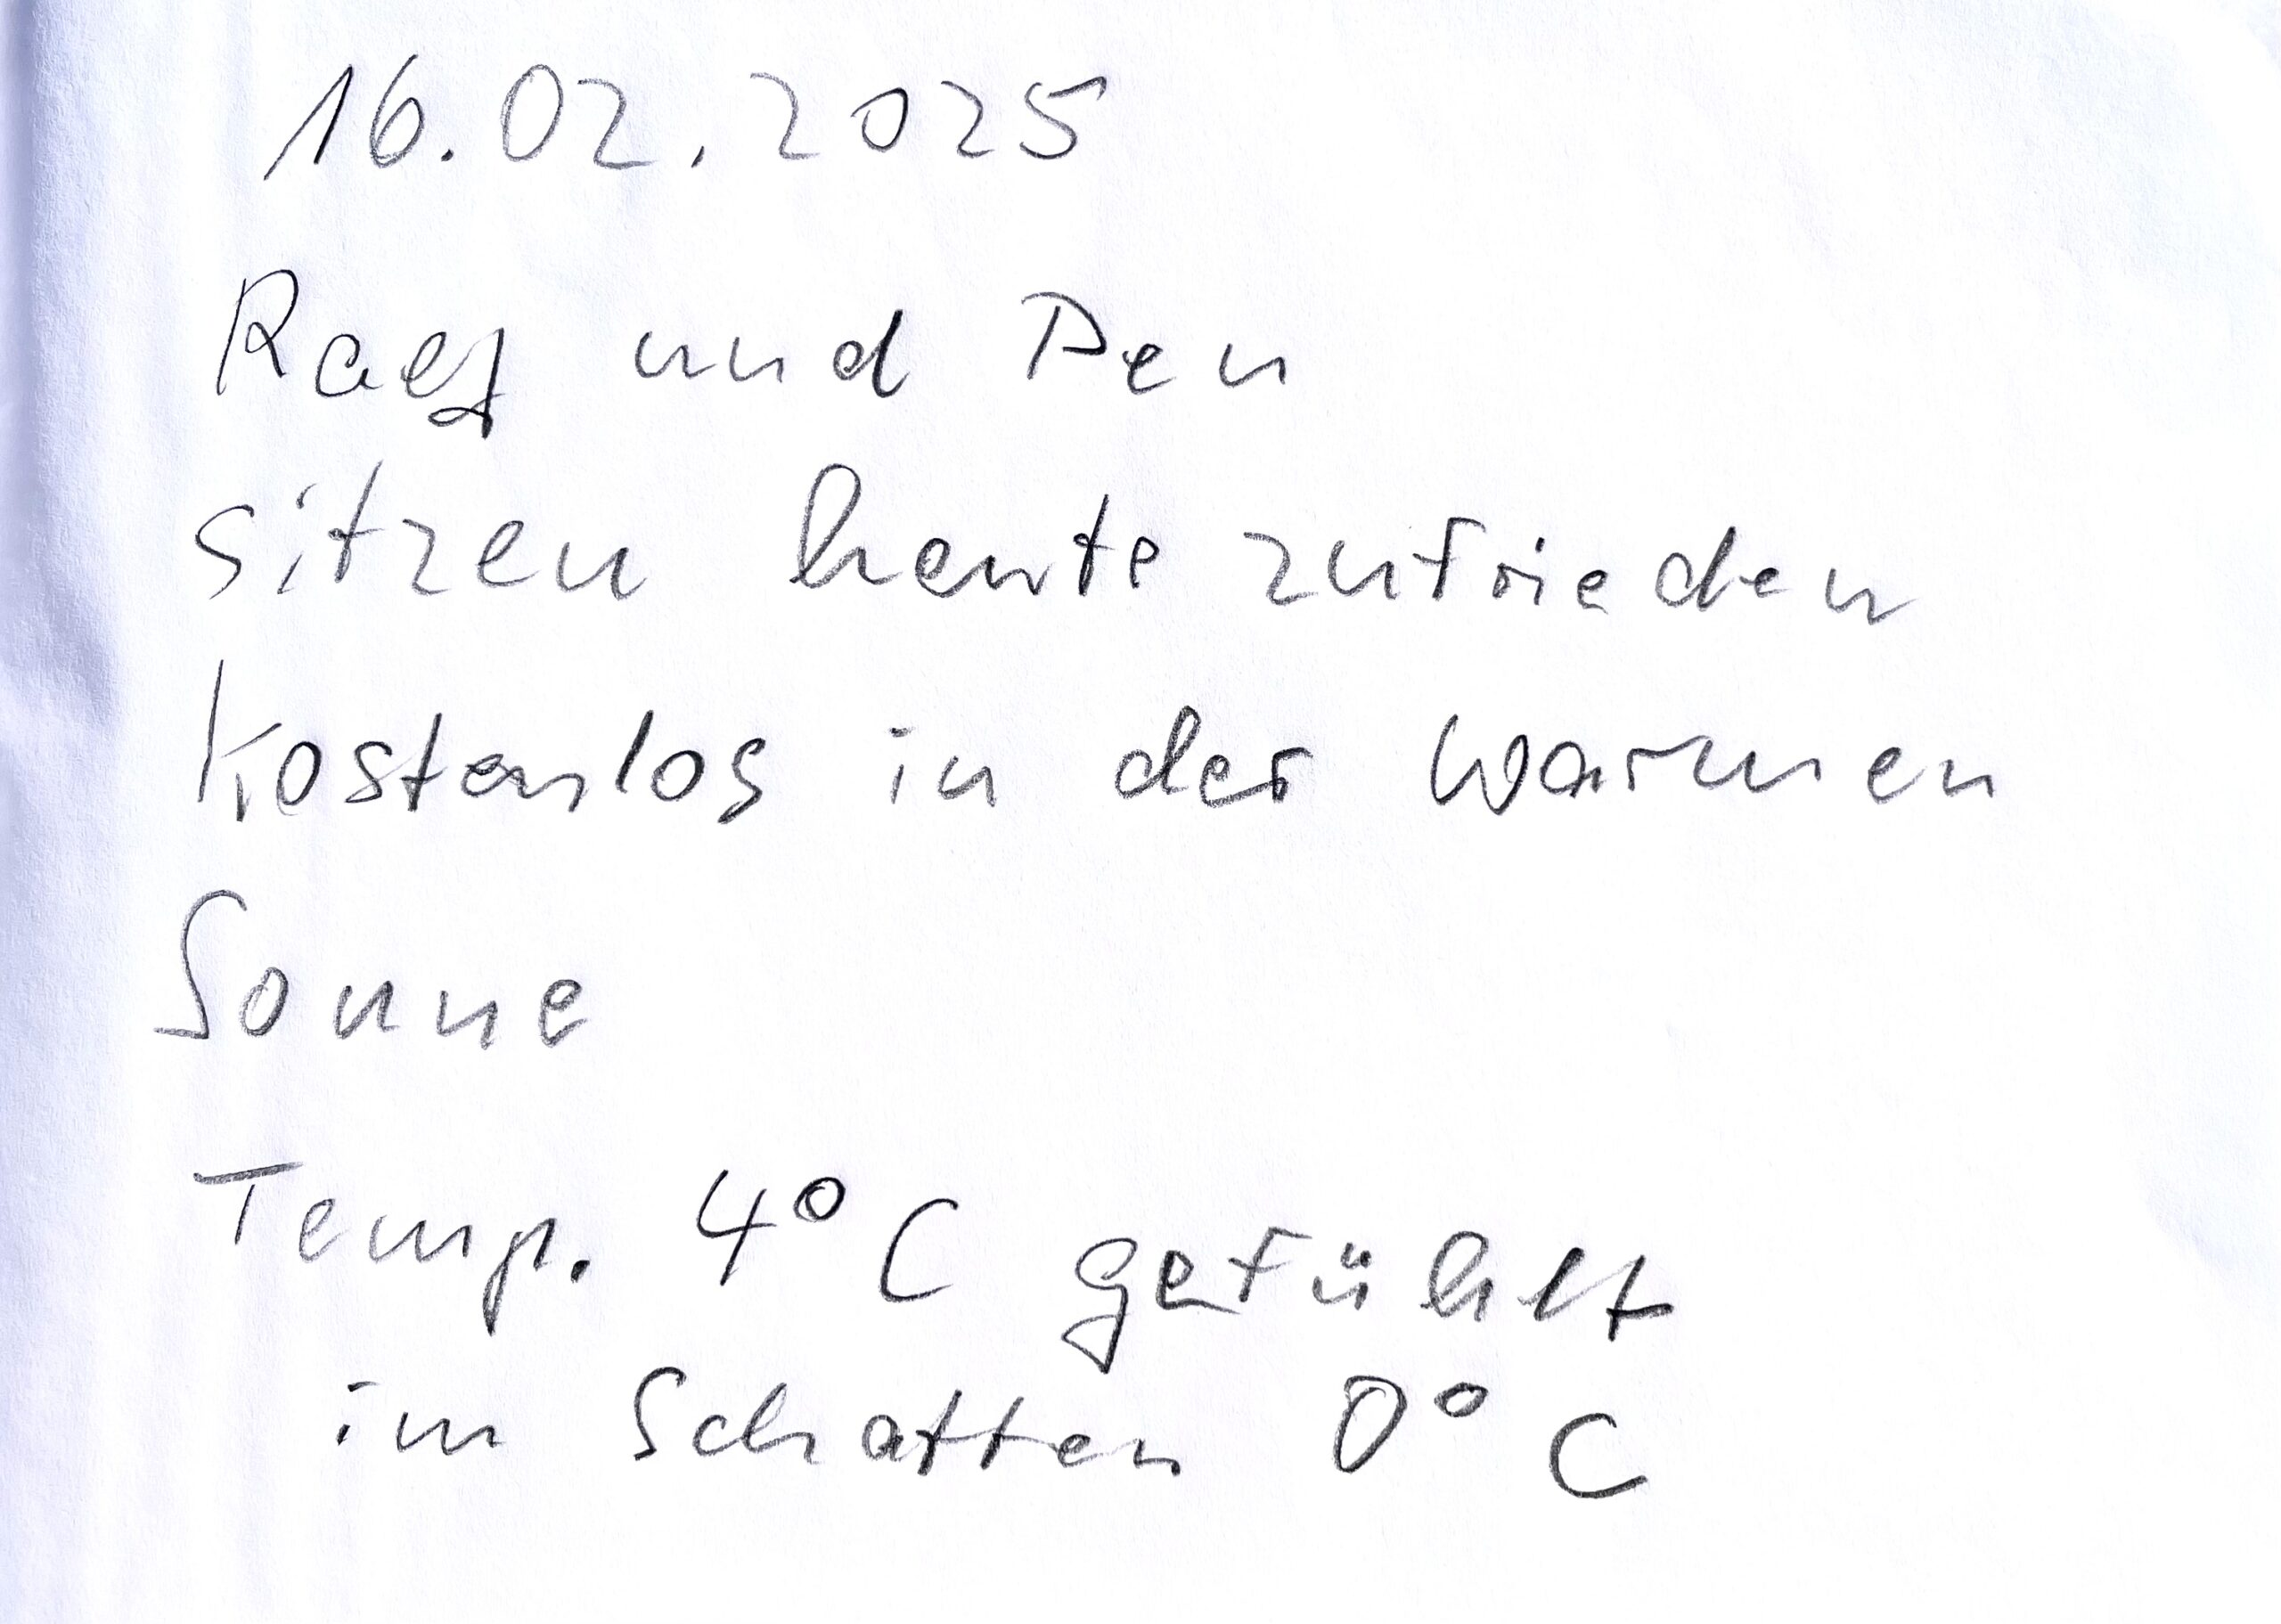 16.02.2025
und
sitzen heute zufrieden
kostenlos in der warmen
Sonne
Temp. 4°C gefühlt
im Schatten 0°C